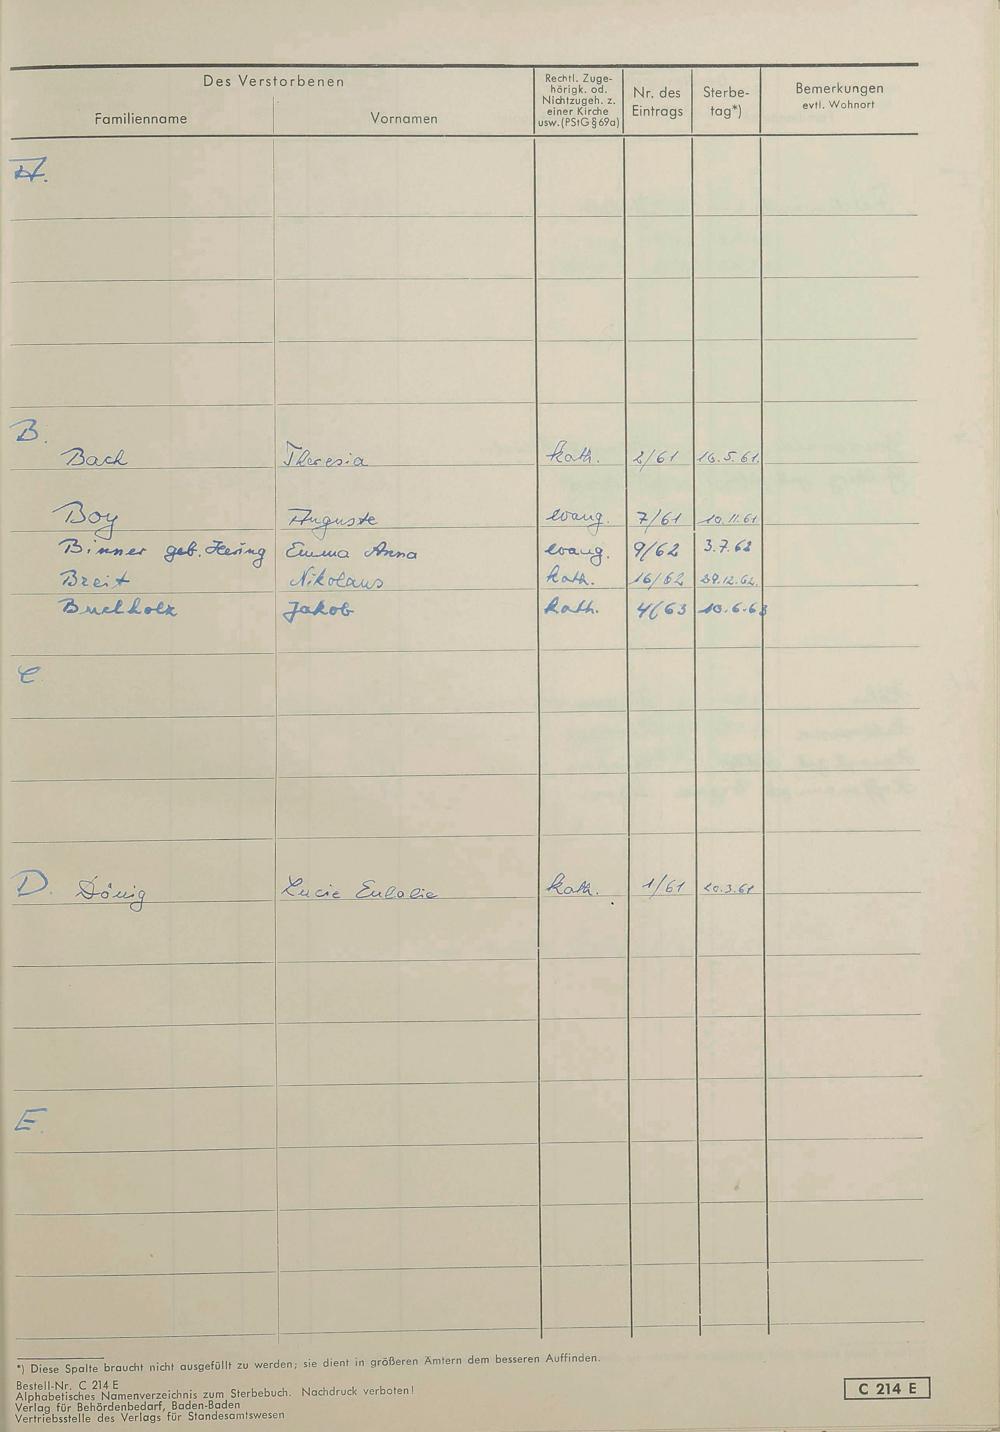 Des Verstorbenen
Familienname Vornamen Rechtl. Zuge-
hörigk. od.
Nichtzugeh. z.
einer Kirche
usw. (PStG § 69a) Nr. des
Eintrags Sterbe-
tag*) Bemerkungen
evtl. Wohnort
A.
B.
Bach Theresia kath. 2/61 16.5.61.
Boy Auguste evang. 7/61 10.11.61
Binner geb. Hering Emma Anna evang. 9/62 3.7.62
Breit Nikolaus kath. 16/62 29.12.62.
Buchholz Jakob kath. 4/63 10.6.63
C
D. Dönig Lucie Eulalie kath. 1/61 20.3.61
E.
*) Diese Spalte braucht nicht ausgefüllt zu werden; sie dient in größeren Ämtern dem besseren Auffinden.
Bestell-Nr. C 214 E
Alphabetisches Namenverzeichnis zum Sterbebuch. Nachdruck verboten!
Verlag für Behördenbedarf, Baden-Baden
Vertriebsstelle des Verlags für Standesamtswesen
C 214 E